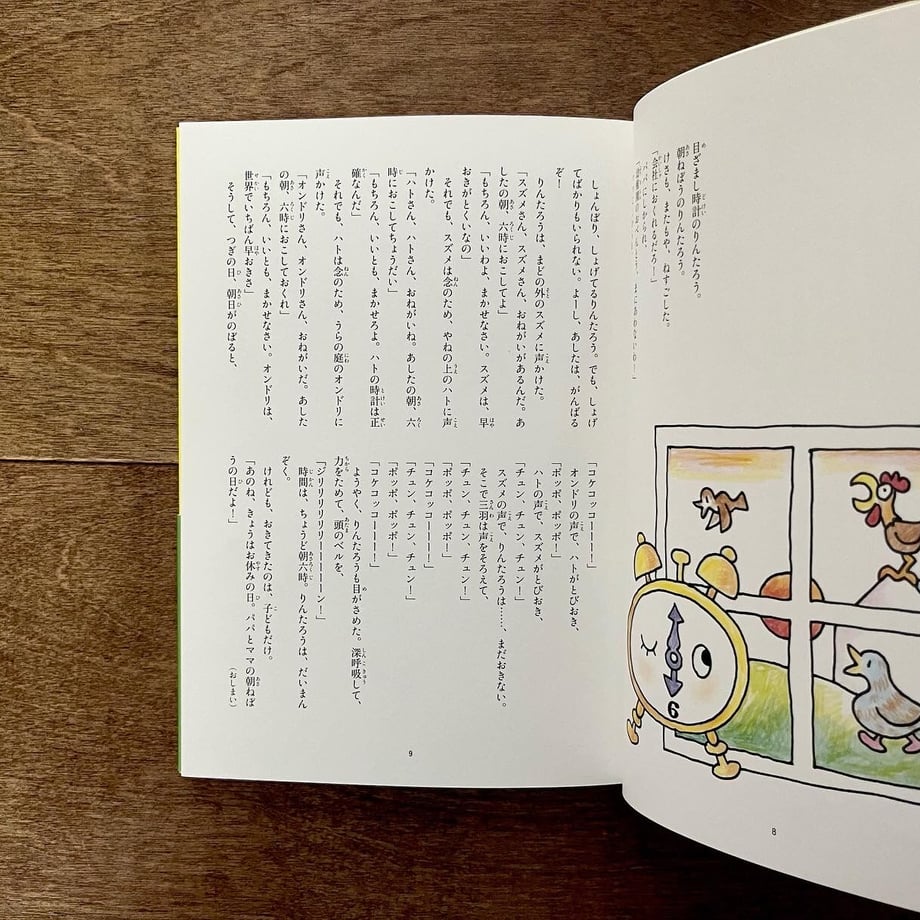 目ざまし時計のりんたろう。
朝ねぼうのりんたろう。
けさも、またもや、ねすごした。
「会社におくれるだろ！」
パパにしかられ、
8
しょんぼり、しょげてるりんたろう。でも、しょげ
てばかりもいられない。よーし、あしたは、がんばる
ぞ！
りんたろうは、まどの外のスズメに声かけた。
「スズメさん、スズメさん、おねがいがあるんだ。あ
したの朝、六時におこしてよ」
「もちろん、いいわよ、まかせなさい。スズメは、早
おきがとくいなの」
それでも、スズメは念のため、やねの上のハトに声
かけた。
「ハトさん、ハトさん、おねがいね。あしたの朝、六
時におこしてちょうだい」
「もちろん、いいとも、まかせろよ。ハトの時計は正
確なんだ」
それでも、ハトは念のため、うらの庭のオンドリに
声かけた。
「オンドリさん、オンドリさん、おねがいだ。あした
の朝、六時におこしておくれ」
「もちろん、いいとも、まかせなさい。オンドリは、
世界でいちばん早おきさ」
そうして、つぎの日　朝日がのぼると、
「コケコッコーーーー！」
オンドリの声で、ハトがとびおき、
「ポッポ、ポッポ！」
ハトの声で、スズメがとびおき、
「チュン、チュン、チュン！」
スズメの声で、りんたろうは……、まだおきない。
そこで三羽は声をそろえて、
「チュン、チュン、チュン！」
「ポッポ、ポッポ！」
「コケコッコーーーー！」
「チュン、チュン、チュン！」
「ポッポ、ポッポ！」
「コケコッコーーーー！」
ようやく、りんたろうも目がさめた。深呼吸して、
力をためて、頭のベルを、
「ジリリリリリリーーーーーン！」
時間は、ちょうど朝六時。りんたろうは、だいまん
ぞく。
けれども、おきてきたのは、子どもだけ。
「あのね、きょうはお休みの日。パパとママの朝ねぼ
うの日だよ！」
（おしまい）
9
6